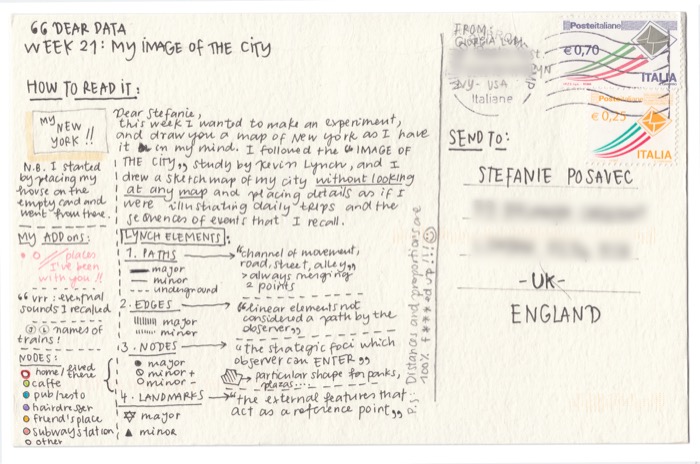 66 DEAR DATA
WEEK 21: MY IMAGE OF THE CITY
HOW TO READ IT:
MY NEW YORK !!
N.B. I started
by placing my
house on the
empty card and
went from there.
MY ADD ons:
places
I've been
with you !!
"vrr: eventual
sounds I recalled
names of
trains!
NODES:
home/lived there
caffe
pub/resto
hairdresser
friend's place
subway station
other
Dear Stefanie,
this week I wanted to make an experiment,
and draw you a map of New York as I have
it in my mind. I followed the "IMAGE OF
THE CITY" study by Kevin Lynch, and I
drew a sketch map of my city without looking
at any map and placing details as if I
were illustrating daily trips and the
sequences of events that I recall.
LYNCH ELEMENTS:
1. PATHS
major
minor
underground
"channel of movement,
road, street, alley"
> always merging
2 points
2. EDGES
major
minor
"linear elements not
considered a path by the
observer"
3. NODES
major
minor +
minor -
"the strategic foci which
observer can ENTER"
particular shape for parks,
plazas....
4. LANDMARKS
major
minor
"the external features that
act as a reference point"
P.S: Distances and proportions are
100% f***ed up!!!
FROM:
GIORGIA
NY- USA
Italiane
Posteitaliane
€0,70
ITALIA
Posteitaliane
€0,25
ITALIA
SEND TO:
STEFANIE POSAVEC
-UK-
ENGLAND